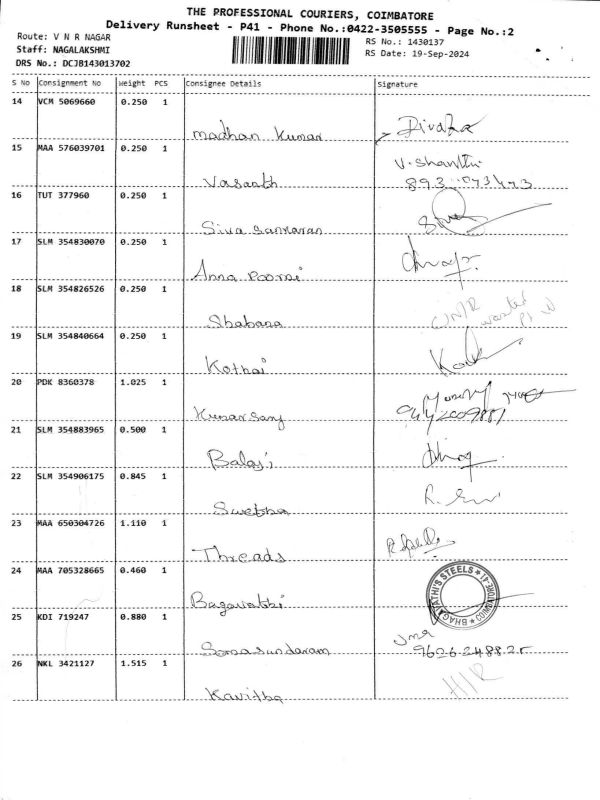 THE PROFESSIONAL COURIERS, COIMBATORE
Delivery Runsheet - P41 - Phone No.:0422-3505555 - Page No.:2
Route: V N R NAGAR
RS No.: 1430137
Staff: NAGALAKSHMI
RS Date: 19-Sep-2024
DRS No.: DCJB143013702
S No Consignment No Weight PCS Consignee Details Signature
14 VCM 5069660 0.250 1
Madhan Kumar
15 MAA 576039701 0.250 1
Vasanth V. Shanthi
16 TUT 377960 0.250 1
Siva Sankaran
17 SLM 354830070 0.250 1
Anna Poorni
18 SLM 354826526 0.250 1
Shabana
19 SLM 354840664 0.250 1
Kothai
20 PDK 8360378 1.025 1
Kumarsamy
21 SLM 354883965 0.500 1
Balaji
22 SLM 354906175 0.845 1
Swetha
23 MAA 650304726 1.110 1
Threads
24 MAA 705328665 0.460 1
Bagavathi
BHAGAVATHI'S STEELS
COIMBATORE-41
25 KDI 719247 0.880 1
Somasundaram
9626248825
26 NKL 3421127 1.515 1
Kavitha